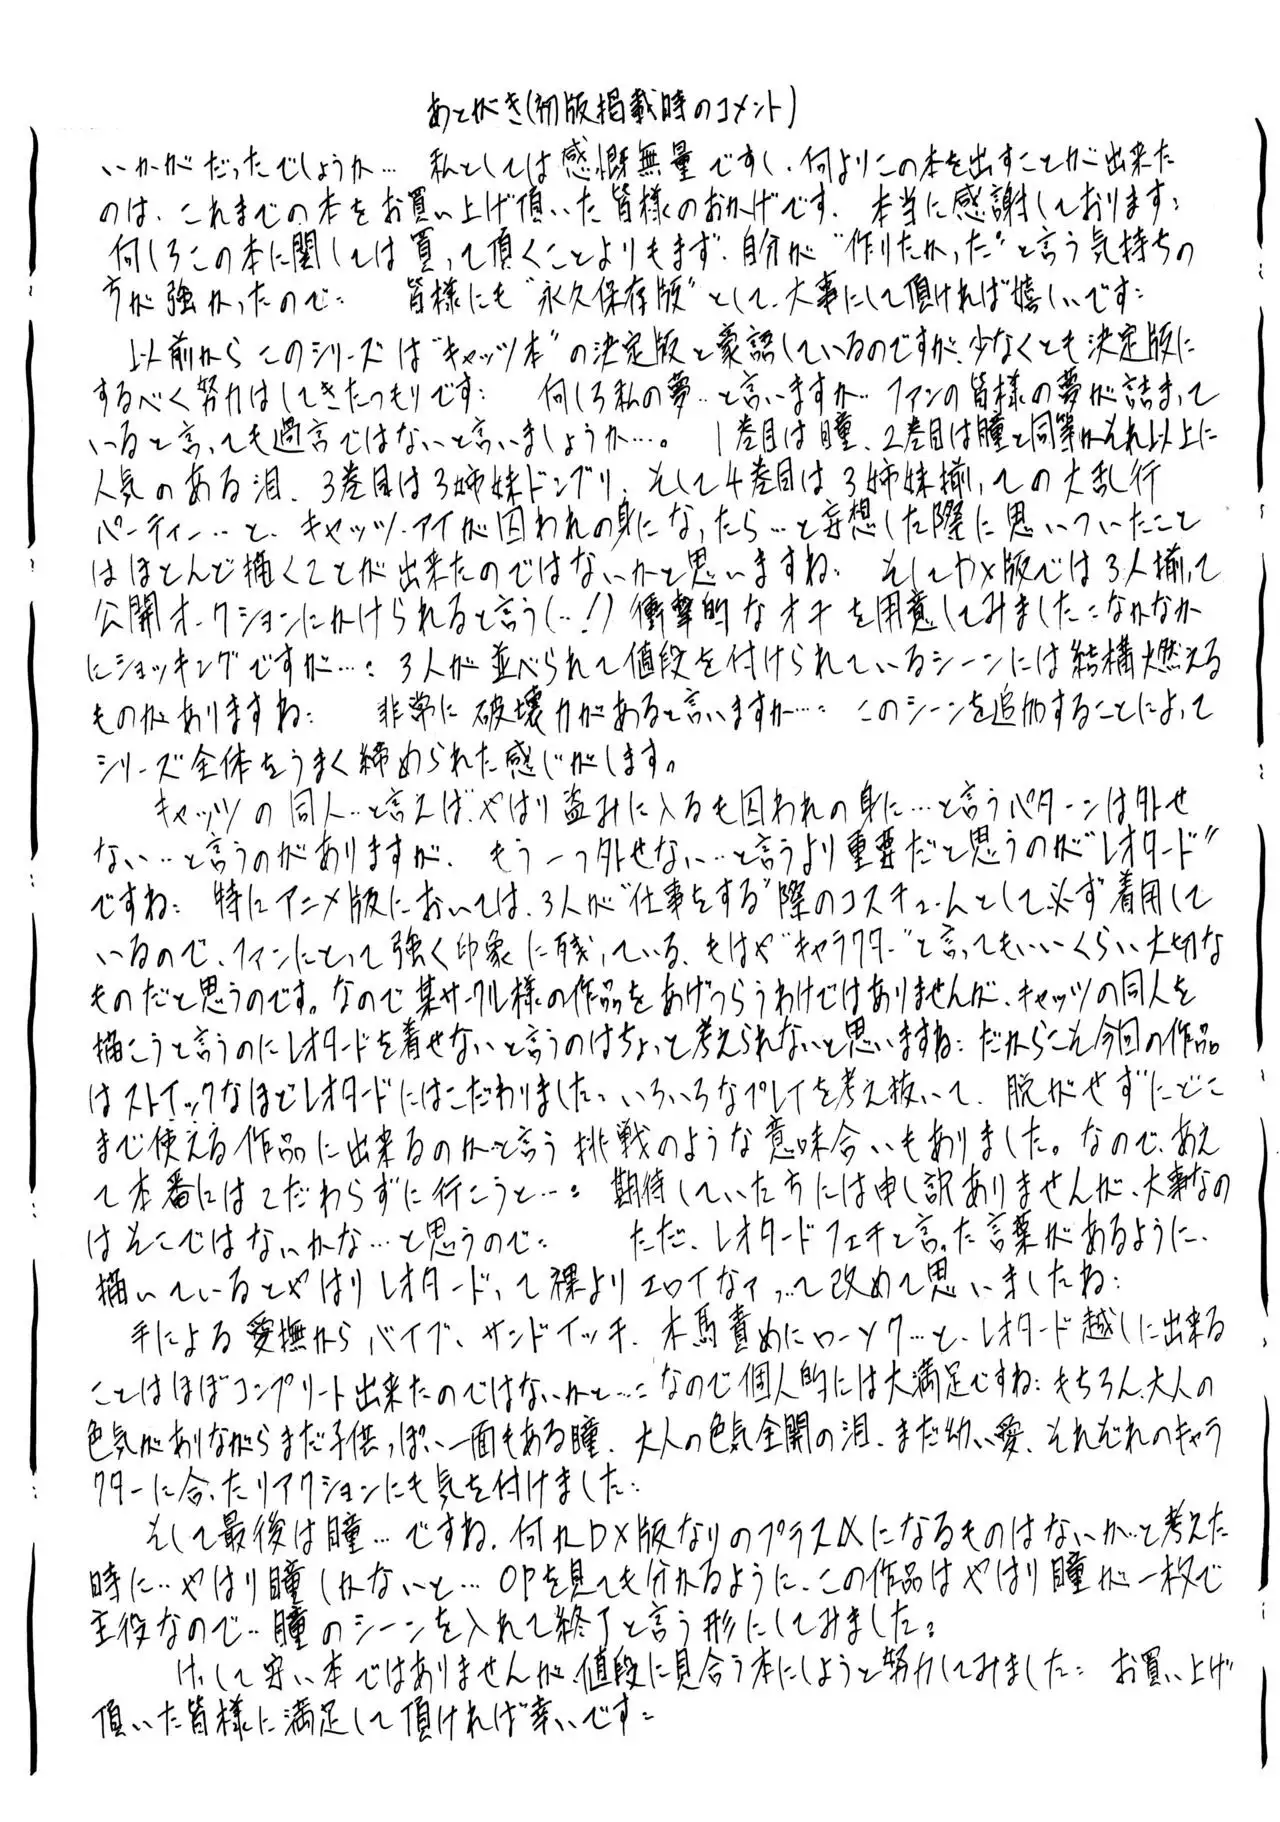 あとがき(初版掲載時のコメント)
いかがだったでしょうか… 私としては感慨無量ですし、何よりこの本を出すことが出来た
のは、これまでの本をお買い上げ頂いた皆様のおかげです。 本当に感謝しております:
何しろこの本に関しては買って頂くことよりもまず、自分が"作りたかった"と言う気持ちの
方が強かったので: 皆様にも"永久保存版"として、大事にして頂ければ嬉しいです:
以前からこのシリーズは"キャッツ本"の決定版と豪語しているのですが、少なくとも決定版に
するべく努力はしてきたつもりです: 何しろ私の夢…と言いますか…ファンの皆様の夢が詰まって
いると言っても過言ではないと言いましょうか…。 1巻目は瞳、2巻目は瞳と同等かそれ以上に
人気のある泪、3巻目は3姉妹ドンブリ、そして4巻目は3姉妹揃っての大乱行
パーティー…と、キャッツ・アイが囚われの身になったら…と妄想した際に思いついたこと
はほとんど描くことが出来たのではないかと思いますね: そしてDX版では3人揃って
公開オークションにかけられると言う(…!)衝撃的なオチを用意してみました:なかなか
にショッキングですが…: 3人が並べられて値段を付けられているシーンには結構燃える
ものがありますね: 非常に破壊力があると言いますか…: このシーンを追加することによって
シリーズ全体をうまく締められた感じがします。
キャッツの同人…と言えば、やはり盗みに入るも囚われの身に…と言うパターンは外せ
ない…と言うのがありますが、もう一つ外せない…と言うより重要だと思うのが"レオタード"
ですね: 特にアニメ版においては、3人が"仕事をする"際のコスチュームとして必ず着用して
いるので、ファンにとって強く印象に残っている、もはや"キャラクター"と言ってもいいくらい大切な
ものだと思うのです。なので某サークル様の作品をあげつらうわけではありませんが、キャッツの同人を
描こうと言うのにレオタードを着せないと言うのはちょっと考えられないと思いますね:だからこそ今回の作品
はストイックなほどレオタードにはこだわりました、いろいろなプレイを考え抜いて、脱がせずにどこ
まで使える作品に出来るのか…と言う挑戦のような意味合いもありました。なので、あえ
て本番にはこだわらずに行こうと…: 期待していた方には申し訳ありませんが、大事なの
はそこではないかな…と思うので: ただ、レオタードフェチと言った言葉があるように、
描いているとやはりレオタードって裸よりエロイなァ…って改めて思いましたね:
手による愛撫からバイブ、サンドイッチ、木馬責めにローソク…と、レオタード越しに出来る
ことはほぼコンプリート出来たのではないかと…:なので個人的には大満足ですね:もちろん、大人の
色気がありながらまだ子供っぽい一面もある瞳、大人の色気全開の泪、まだ幼い愛、それぞれのキャラ
クターに合ったリアクションにも気を付けました:
そして最後は瞳…ですね、何れDX版なりのプラスαになるものはないか…と考えた
時に…やはり瞳しかないと…OPを見ても分かるように、この作品はやはり瞳が一枚で
主役なので…瞳のシーンを入れて終了と言う形にしてみました:
けっして安い本ではありませんが、値段に見合う本にしようと努力してみました: お買い上げ
頂いた皆様に満足して頂ければ幸いです: